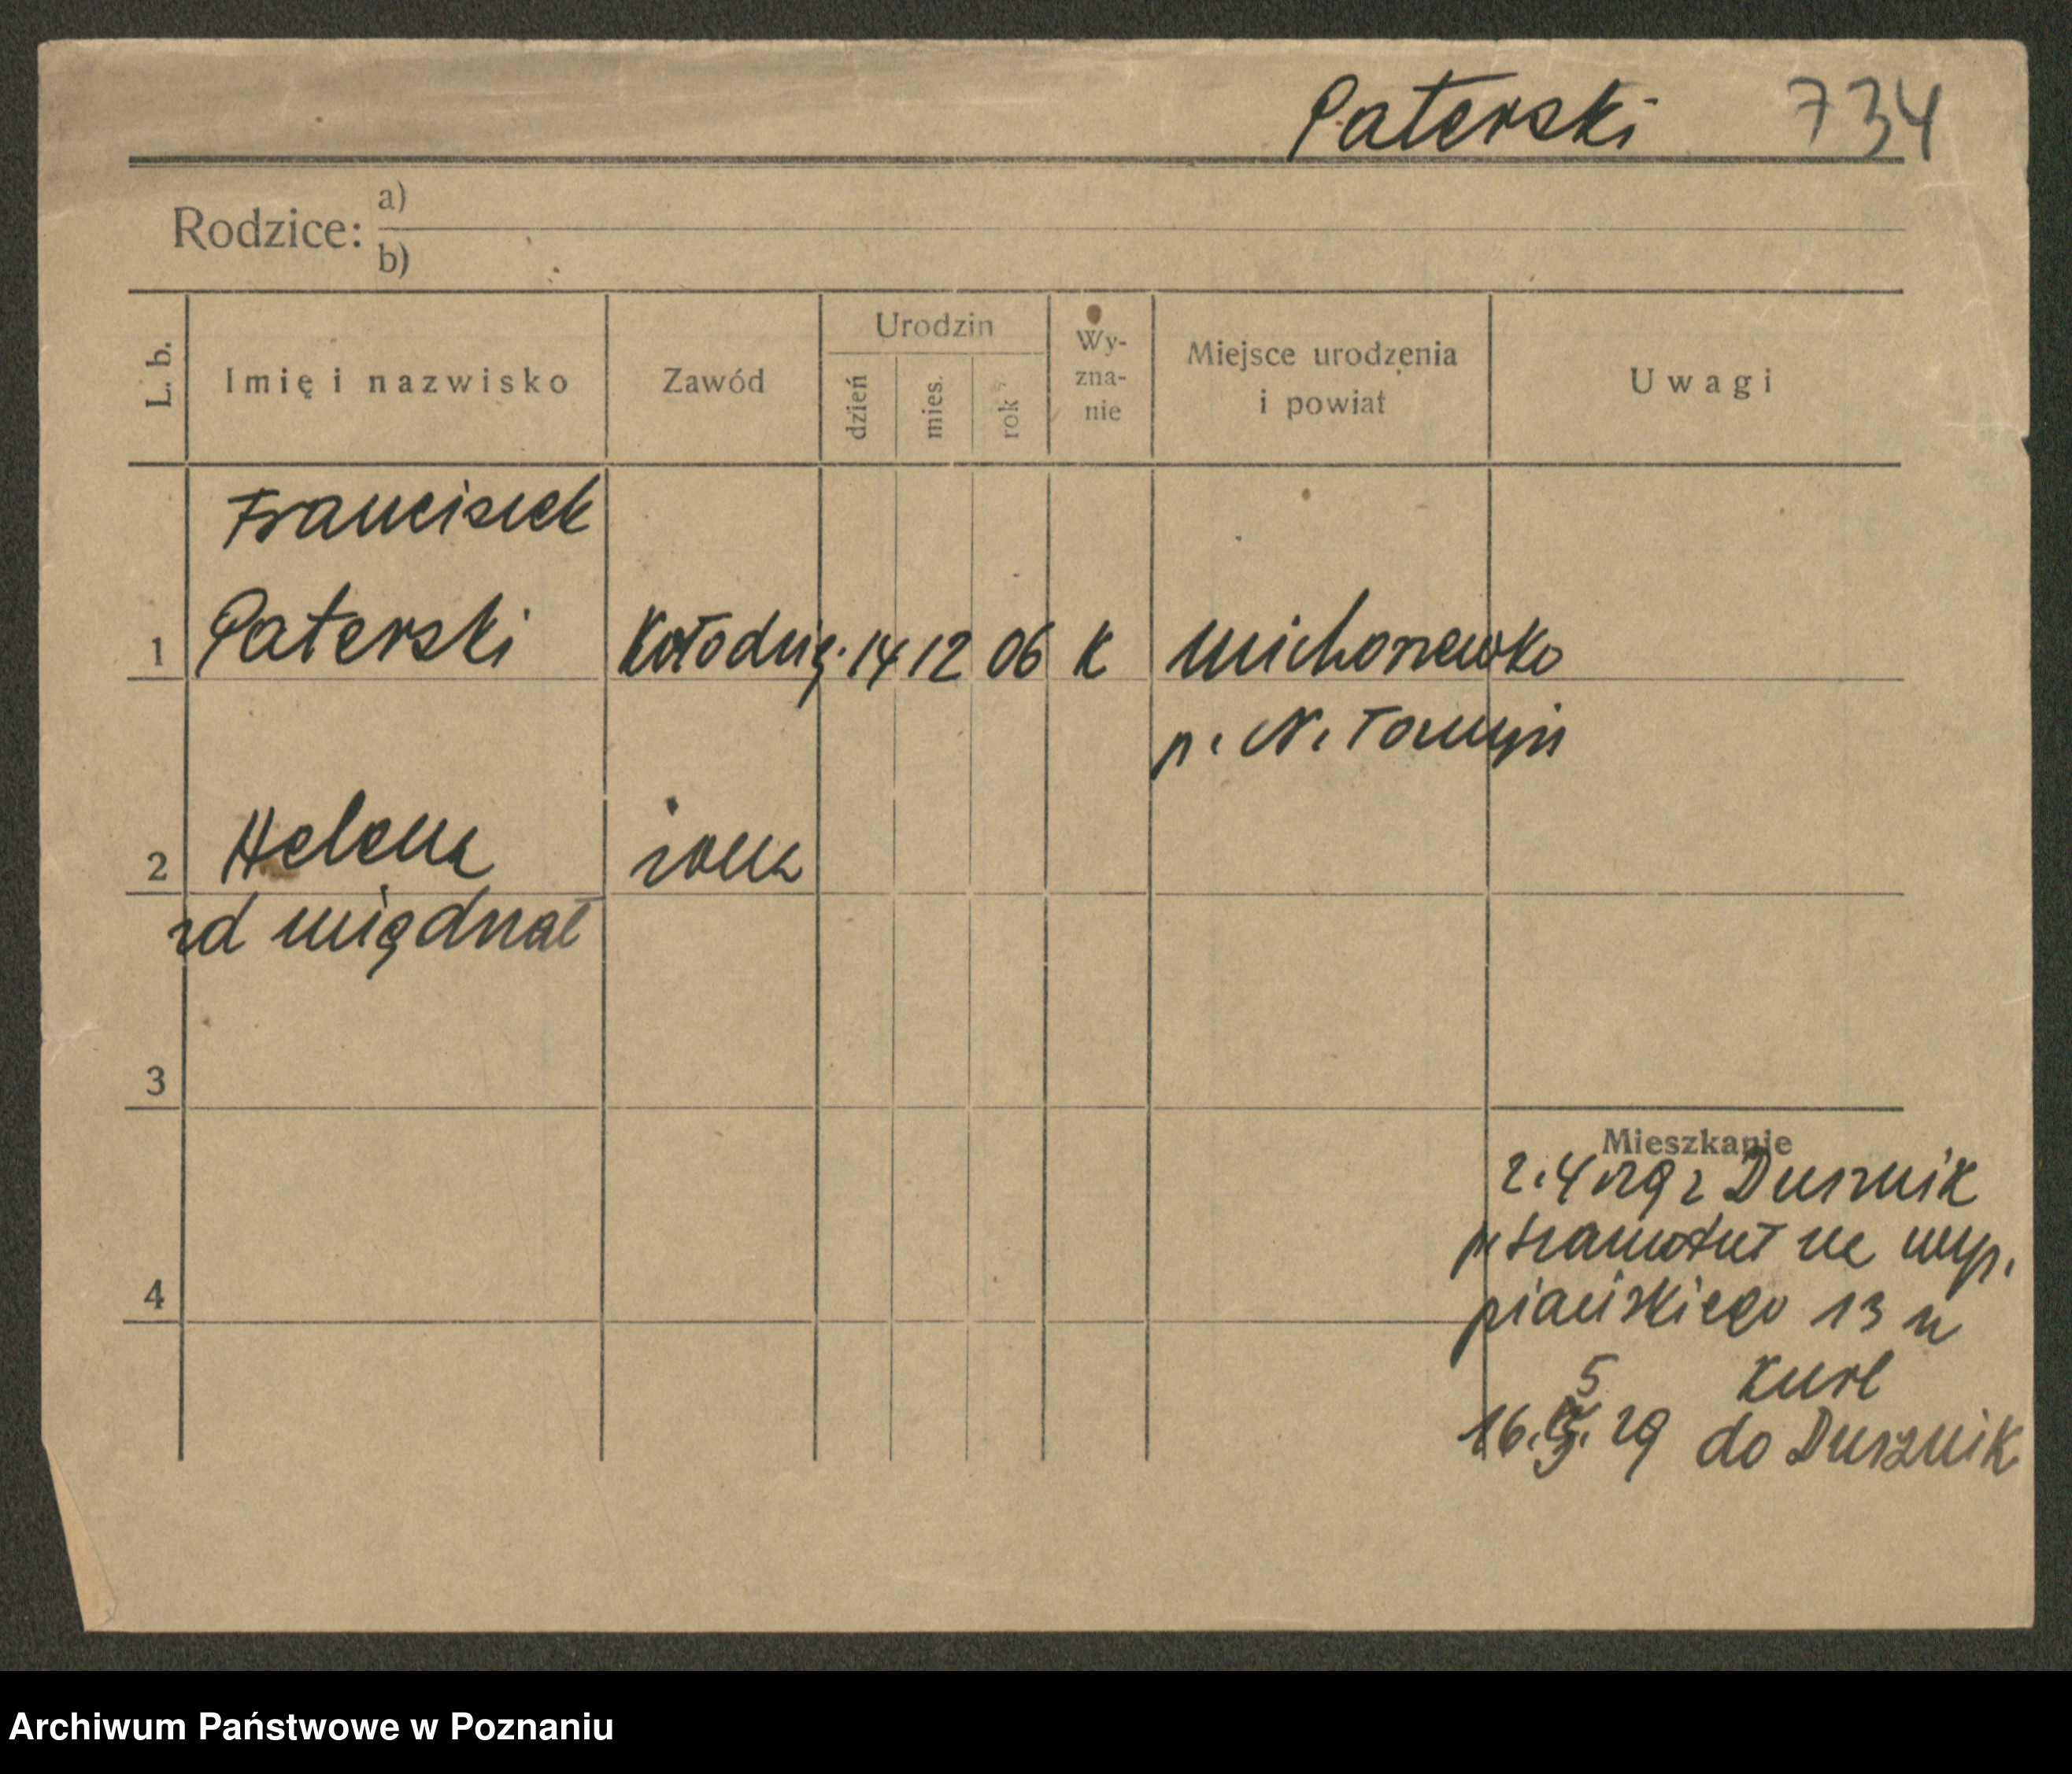 Paterski 734
Rodzice: a)
b)
L. b.
Imię i nazwisko
Zawód
Urodzin
dzień
mies.
rok
Wy-
zna-
nie
Miejsce urodzenia
i powiat
Uwagi
Franciszek
1 Paterski Kołodziej. 14 12 06 K Michorzewko
p. N. Tomyśl
2 Helena żona
3
4
Mieszkanie
2.4 29 z Dusznik
p Szamotuł na Wys.
piańskiego 13 u
5
16. 29 do Dusznik
Archiwum Państwowe w Poznaniu